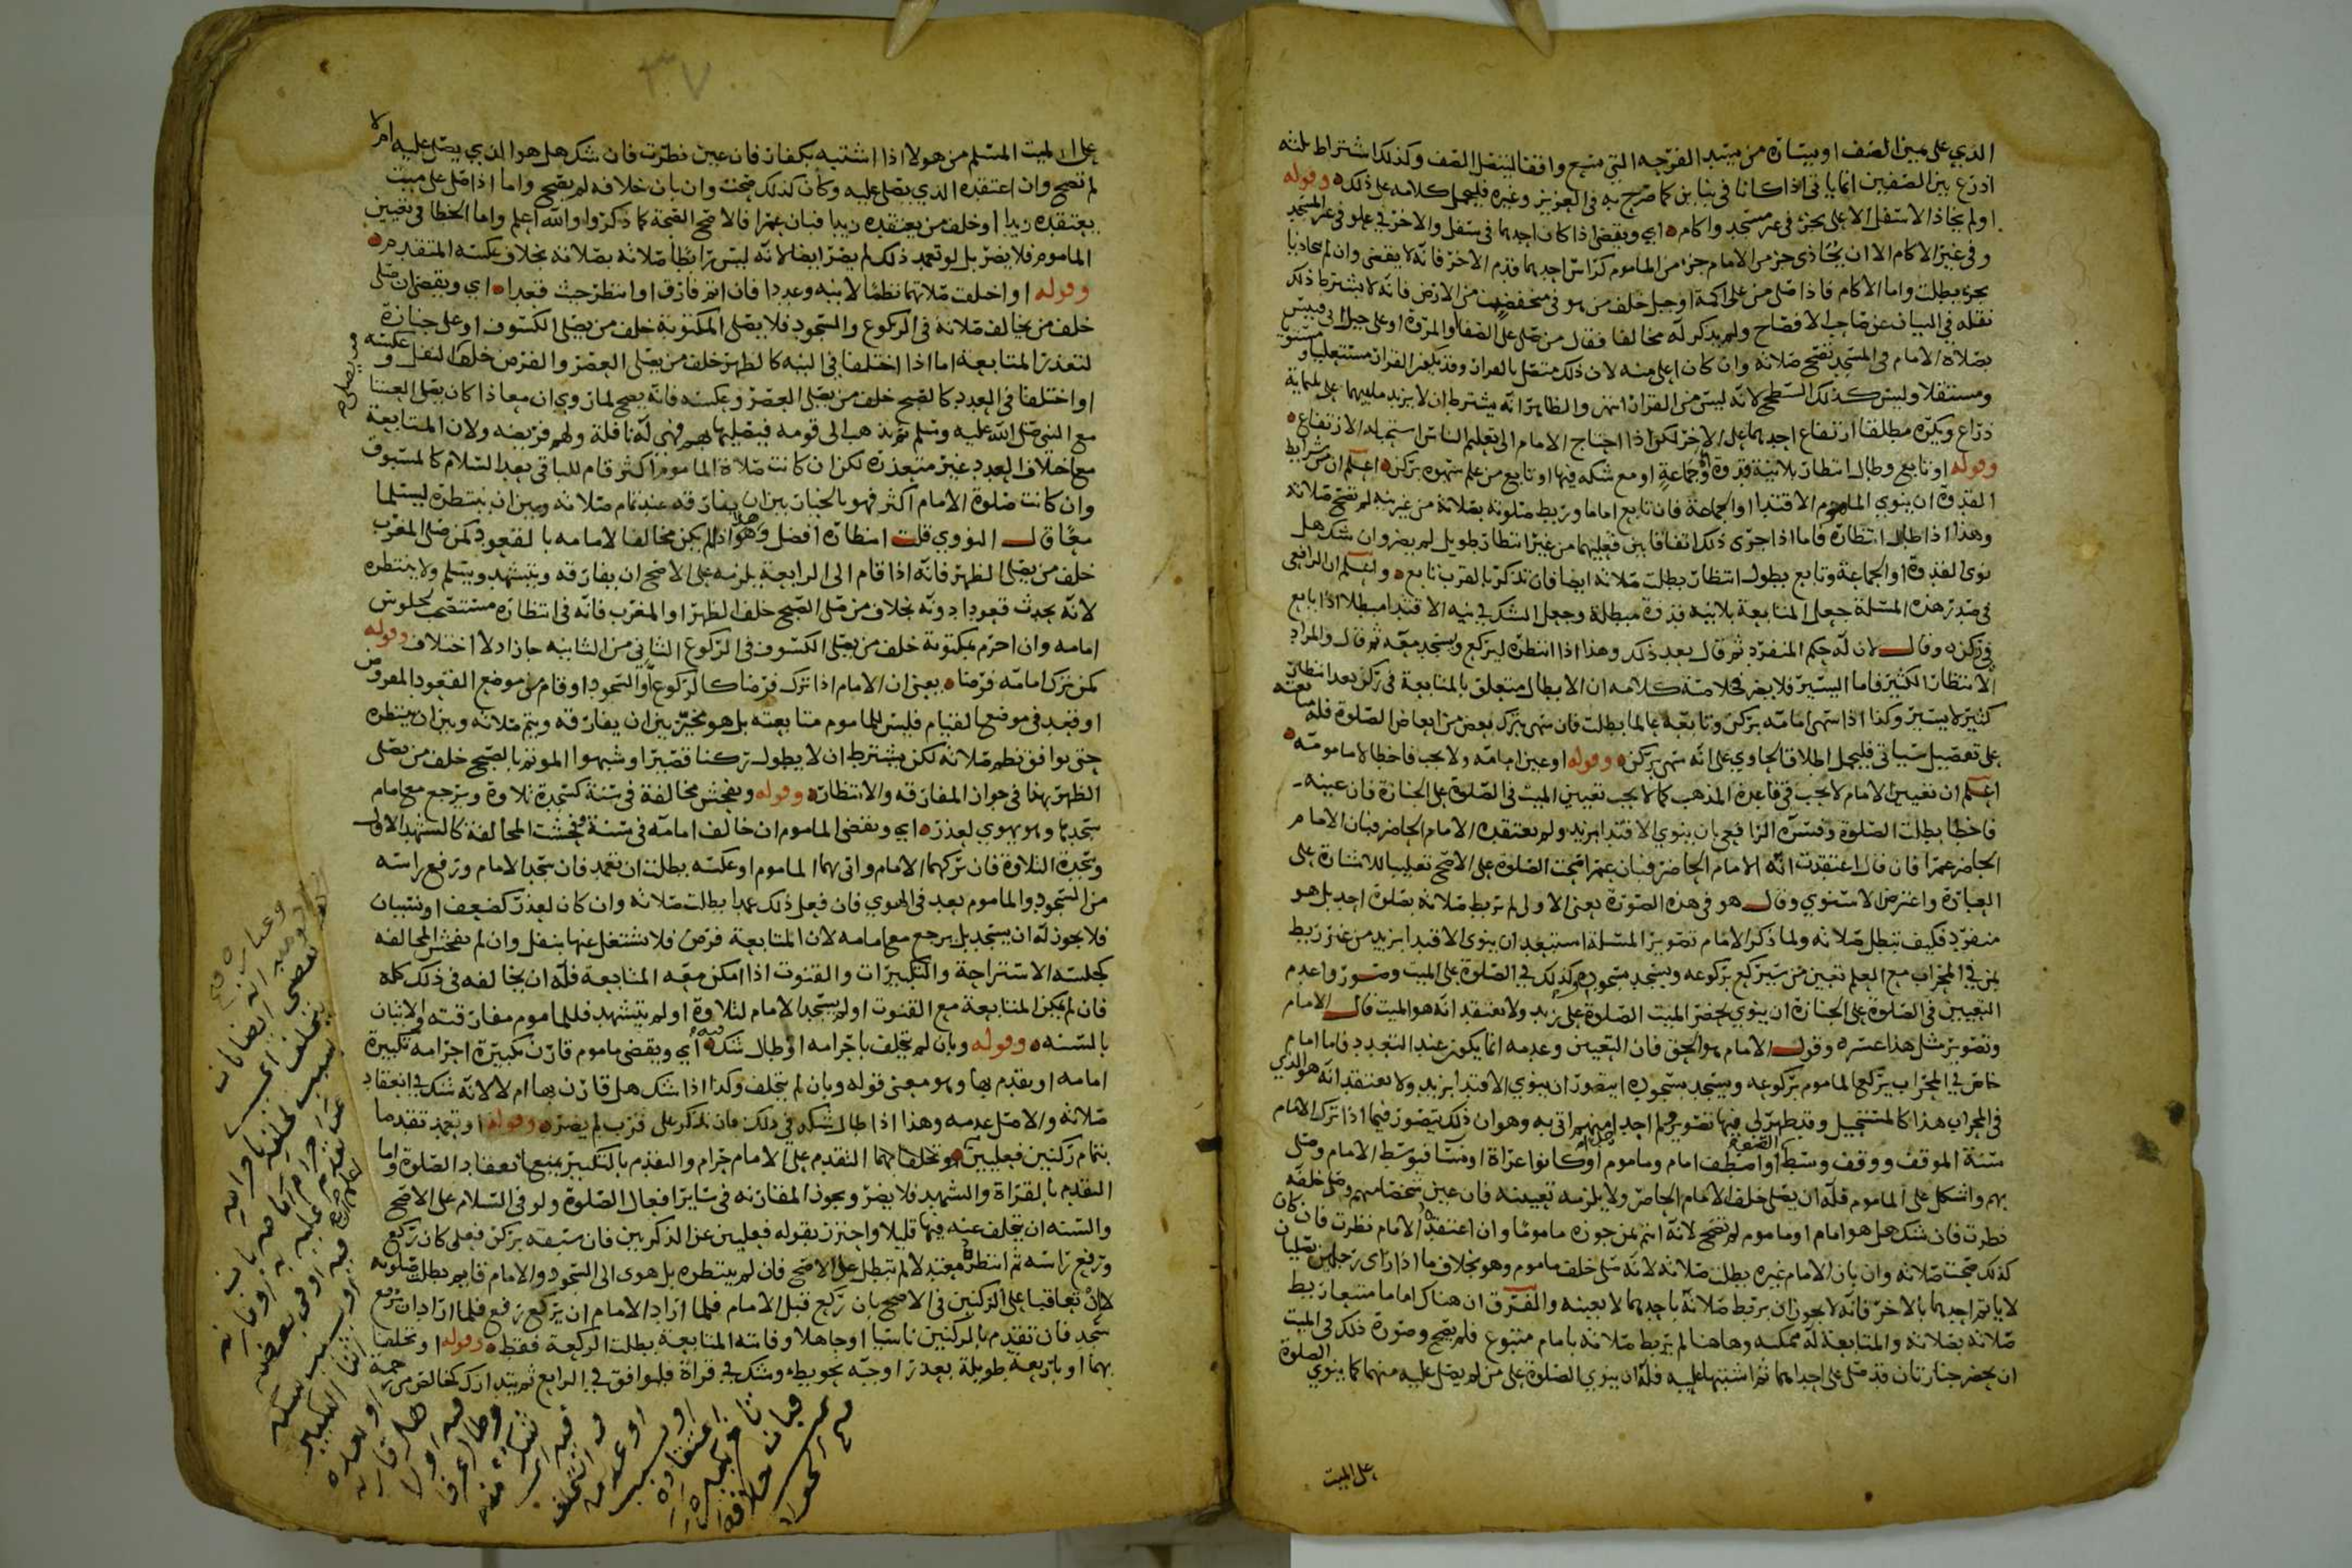 الذي على يمين الصف او يساره من يسد الفرجه التي تتبع واقفا لينفصل الصف وكذلك اشتراط ثلثه
اذرع بين الصفين انما ياتي اذا كانا في بنا ين كما صرح به في العزيز وغيره فليحمل كلامه على ذلك وقوله
او لم يحاذ الاسفل الاعلى بجزء في غير مسجد واكام اي ويقضي اذا كان احدهما في سفل والاخر في علو في غير المسجد
وفي غير الاكام الا ان يحاذي جزء من الامام جزء من الماموم كراس احدهما قدم الاخر فانه لا يقضي وان لم يتحاذيا
بجزء بطلت واما الاكام فاذا صلى من على اكمة او جبل خلف من هو في منخفض من الارض فانه لا يشترط ذلك
نقله في البيان عن صاحب الافصاح ولم يذكر له مخالفا فقال من صلى على الصفا او المروة او على جبل ابي قبيس
بصلاة الامام في المسجد تصح صلاته وان كان اعلى منه لان ذلك متصل بالقرار وقد يكون القرار مستعليا ومستويا
ومستفلا وليس كذلك السطح لانه ليس من القرار انتهى والظاهر انه يشترط ان لا يزيد ما بينهما على ثلثماية
ذراع ويكره مطلقا ارتفاع احدهما على الاخر لكن اذا احتاج الامام الى تعليم الناس استحب له الارتفاع
وقوله او تابع وطال انتظار بلا نية قدوة او جماعة او مع شكه فيها او تابع من علم سهوه بركن اعلم ان من شرايط
القدوة ان ينوي الماموم الاقتدا او الجماعة فان تابع اماما وربط صلوته بصلاته من غير نيه لم تصح صلاته
وهذا اذا طال انتظاره فاما اذا جرى ذلك اتفاقا بين فعليهما من غير انتظار طويل لم يضر وان شك هل
نوى القدوة او الجماعة وتابع بطول انتظار بطلت صلاته ايضا فان تذكر بالقرب تابع واعلم ان الرافعي
في صدر هذه المسئلة جعل المتابعة بلا نيه قدوة مبطلة وجعل الشك في نيه الاقتدا مبطلا اذا تابع
في ركن وقال لان له حكم المنفرد ثم قال بعد ذلك وهذا اذا انتظره ليركع ويسجد معه ثم قال والمراد
الانتظار الكثير فاما اليسير فلا يضر فخلاصة كلامه ان الابطال متعلق بالمتابعة في ركن بعد انتظار
كثير لا يسير وكذا اذا سهى امامه بركن وتابعه عالما بطلت فان سهى بترك بعض من ابعاض الصلوة فله متابعته
على تفصيل سياتي فليحمل اطلاق الحاوي على انه سهى بركن وقوله او عين امامه ولا يجب فاخطا لا مامومه
اعلم ان تعيين الامام لا يجب في قاعدة المذهب كما لا يجب تعيين الميت في الصلوة على الجنازة فان عينه
فاخطا بطلت الصلوة وفسره الرافعي بان ينوي الاقتدا بزيد ولم يعتقده الامام الحاضر فبان الامام
الحاضر عمرا فان قال اعتقدت انه الامام الحاضر فبان عمرا صحت الصلوة على الاصح تغليبا للاشارة على
العبارة واعترض الاسنوي وقال هو في هذه الصورة يعني الاولى لم يربط صلاته بصلوة احد بل هو
منفرد فكيف تبطل صلاته ولما ذكر الامام تصوير المسئلة استبعد ان ينوى الاقتدا بزيد من غير ربط
بمن في المحراب مع العلم تعيين من سيركع بركوعه ويسجد بسجوده وكذلك في الصلوة على الميت وصور واعدم
التعيين في الصلوة على الجنازة ان ينوي بحضر الميت الصلوة على زيد ولا يعتقد انه هو الميت قال الامام
وتصوير مثل هذا عسره وقول الامام هو الحق فان التعيين وعدمه انما يكون عند التعدد فاما امام
خاص في المحراب يركع الماموم بركوعه ويسجد بسجوده ايتصور ان ينوي الاقتدا بزيد ولا يعتقد انه هو الذي
في المحراب هذا كالمستحيل وقد ظهر لي فيها تصوير لم احد منهم اتى به وهو ان ذلك يتصور فيما اذا ترك الامام
سنة الموقف ووقف وسط الصف او اصطف امام وماموم او كانوا عراة او نسا فيوسط الامام وصلى
بهم واشكل على الماموم فله ان يصلي خلف الامام الحاضر ولا يلزمه تعيينه فان عين شخصا منهم وصلى خلفه
نظرت فان شك هل هو امام او ماموم لم تصح لانه ائتم بمن جوزه ماموما وان اعتقده الامام نظرت فان كان
كذلك صحت صلاته وان بان الامام غيره بطلت صلاته لانه صلى خلف ماموم وهو بخلاف ما اذا راى رجلين يصليان
لا ياتم احدهما بالاخر فانه لا يجوز ان يربط صلاته باحدهما لا بعينه والفرق ان هناك اماما متبعا ربط
صلاته بصلاته والمتابعة له ممكنه وهاهنا لم يربط صلاته بامام متبوع فلم يصح وصورة ذلك في الميت
ان يحضر جنازتان قد صلى على احدهما ثم اشتبها عليه فله ان ينوي الصلوة على من لم يصل عليه منهما كما ينوي الصلوة
على الميت
٣٧
على الميت المسلم من هولا اذا اشتبه بكفار فان عين نظرت فان شك هل هو الذي يصلى عليه ام لا
لم تصح وان اعتقده الذي يصلى عليه وكان كذلك صحت وان بان خلافه لم يصح واما اذا صلى على ميت
يعتقده زيدا او خلف من يعتقده زيدا فبان عمرا فالاصح الصحة كما ذكروا والله اعلم واما الخطا في تعيين
الماموم فلا يضر بل لو تعمد ذلك لم يضر ايضا لانه ليس رابطا صلاته بصلاته بخلاف عكسه المتقدم
وقوله او اختلف صلاتهما نظما لا نيه وعددا فان ائتم فارق او انتظر حيث قعدا اي ويقضي ان صلى
خلف من يخالف صلاته في الركوع والسجود فلا يصلي المكتوبة خلف من يصلي الكسوف او على جنازة
لتعذر المتابعة اما اذا اختلفا في النيه كالظهر خلف من يصلي العصر والفرض خلف النفل وعكسه
او اختلفا في العدد كالصبح خلف من يصلي العصر وعكسه فانه يصح لما روي ان معاذا كان يصلي العشا
مع النبي صلى الله عليه وسلم ثم يذهب الى قومه فيصليها بهم فهي له نافلة ولهم فريضه ولان المتابعة
مع اختلاف العدد غير متعذره لكن ان كانت صلاة الماموم اكثر قام للباقي بعد السلام كالمسبوق
وان كانت صلوة الامام اكثر فهو بالخيار بين ان يفارقه عند تمام صلاته وبين ان ينتظره ليسلما
معا قال النووي قلت انتظاره افضل وهذا اذا لم يكن مخالفا لامامه بالقعود كمن صلى المغرب
خلف من يصلي الظهر فانه اذا قام الى الرابعة يلزمه على الاصح ان يفارقه ويتشهد ويسلم ولا ينتظره
لانه يحدث قعودا دونه بخلاف من صلى الصبح خلف الظهر او المغرب فانه في انتظاره مستصحب لجلوس
امامه وان احرم بمكتوبة خلف من يصلي الكسوف في الركوع الثاني من الثانيه جاز اذ لا اختلاف وقوله
كمن ترك امامه فرضا يعني ان الامام اذا ترك فرضا كالركوع او السجود او قام في موضع القعود المفروض
او قعد في موضع القيام فليس للماموم متابعته بل هو مخير بين ان يفارقه ويتم صلاته وبين ان ينتظره
حتى يوافق نظم صلاته لكن يشترط ان لا يطول ركنا قصيرا وشبهوا الموتم بالصبح خلف من يصلي
الظهر بهذا في جواز المفارقه والانتظار وقوله وبفحش مخالفة في سنة كسجدة تلاوة ويرجع مع امام
سجدها وهو يهوي لعذر اي ويقضي الماموم ان خالف امامه في سنة وفحشت المخالفة كالتشهد الاول
وسجدة التلاوة فان تركهما الامام واتى بهما الماموم او عكسه بطلت ان تعمد فان سجد الامام ورفع راسه
من السجود والماموم بعد في الهوي فان فعل ذلك عمدا بطلت صلاته وان كان لعذر كضعف او نسيان
فلا يجوز له ان يسجد بل يرجع مع امامه لان المتابعة فرض فلا تشتغل عنها بنفل وان لم تفحش المخالفه
كجلسة الاستراحة والتكبيرات والقنوت اذا امكن معه المتابعة فله ان يخالفه في ذلك كله
فان لم يمكن المتابعة مع القنوت او لم يسجد الامام لتلاوة او لم يتشهد فللماموم مفارقته والاتيان
بالسنه وقوله وبان لم يتخلف باحرامه او طال شك فيه اي ويقضي ماموم قارن تكبيرة احرامه تكبيرة
امامه او تقدم بها وهو معنى قوله وبان لم يتخلف وكذا اذا شك هل قارن بها ام لا لانه شك في انعقاد
صلاته والاصل عدمه وهذا اذا طال شكه في ذلك فان تذكر على قرب لم يضره وقوله او تعمد تقدما
بتمام ركنين فعليين وتخلفا بهما التقدم على الامام حرام والتقدم بالتكبير يمنع انعقاد الصلوة واما
التقدم بالقراة والتشهد فلا يضر ويجوز المقارنه في ساير افعال الصلوة ولو في السلام على الاصح
والسنه ان يتخلف عنه فيها قليلا واحترز بقوله فعليين عن الذكريين فان سبقه بركن فعلي كان ركع
ورفع راسه ثم انتظره معتدلا لم تبطل على الاصح فان لم ينتظره بل هوى الى السجود والامام قايم بطلت صلوته
لان تعاقبا على الركنين في الاصح بان ركع قبل الامام فلما اراد الامام ان يركع رفع فلما اراد ان يرفع
سجد فان تقدم بالركنين ناسيا او جاهلا وفاتته المتابعة بطلت الركعة فقط وقوله او تخلفا
بهما او باربعة طويلة بعذر اوجبه كبطء وشك في قراة فليوافق في الرابع ثم يتدارك كخالص من زحمة